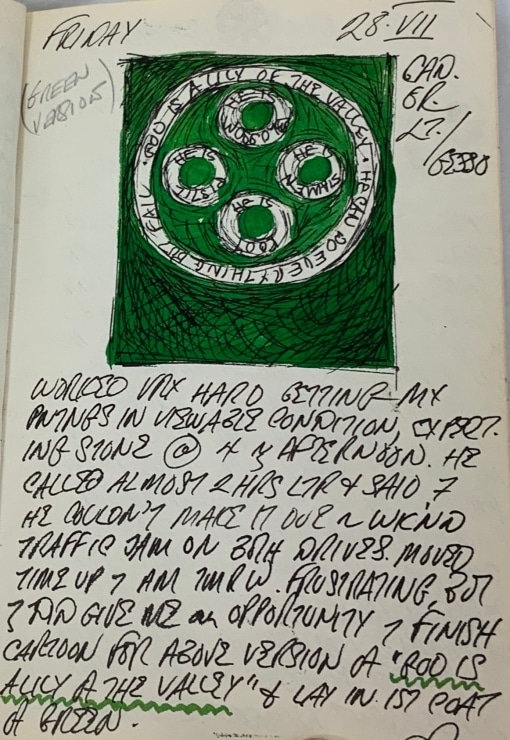 FRIDAY 28.VII
(GREEN
VERSION)
CAD.
GR.
LT./
GESSO
GOD IS A LILY OF THE VALLEY • HE CAN DO EVERYTHING BUT FAIL •
HE IS BLOSSOM
HE PISTIL
HE STAMEN
HE ROOT
WORKED VRY HARD GETTING MY
PNTNGS IN VIEWABLE CONDITION, EXPECT-
ING STONE @ 4 AFTERNOON. HE
CALLED ALMOST 2 HRS LTR & SAID
HE COULDN'T MAKE IT DUE WKND
TRAFFIC JAM ON BOTH DRIVES. MOVED
TIME UP AM TMRW. FRUSTRATING, BUT
DID GIVE ME an OPPORTUNITY FINISH
CARTOON FOR ABOVE VERSION "GOD IS
A LILY THE VALLEY" & LAY IN 1ST COAT
GREEN.